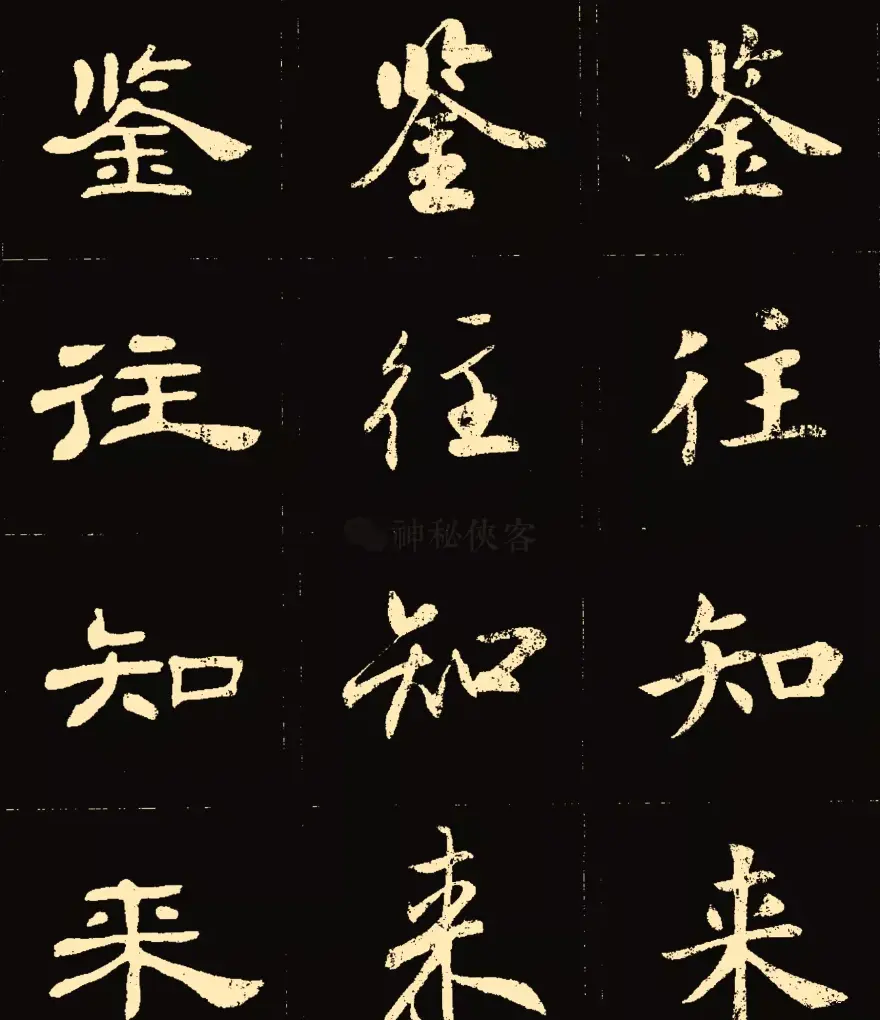 鉴鉴鉴
往往往
神秘侠客
知知知
来来来